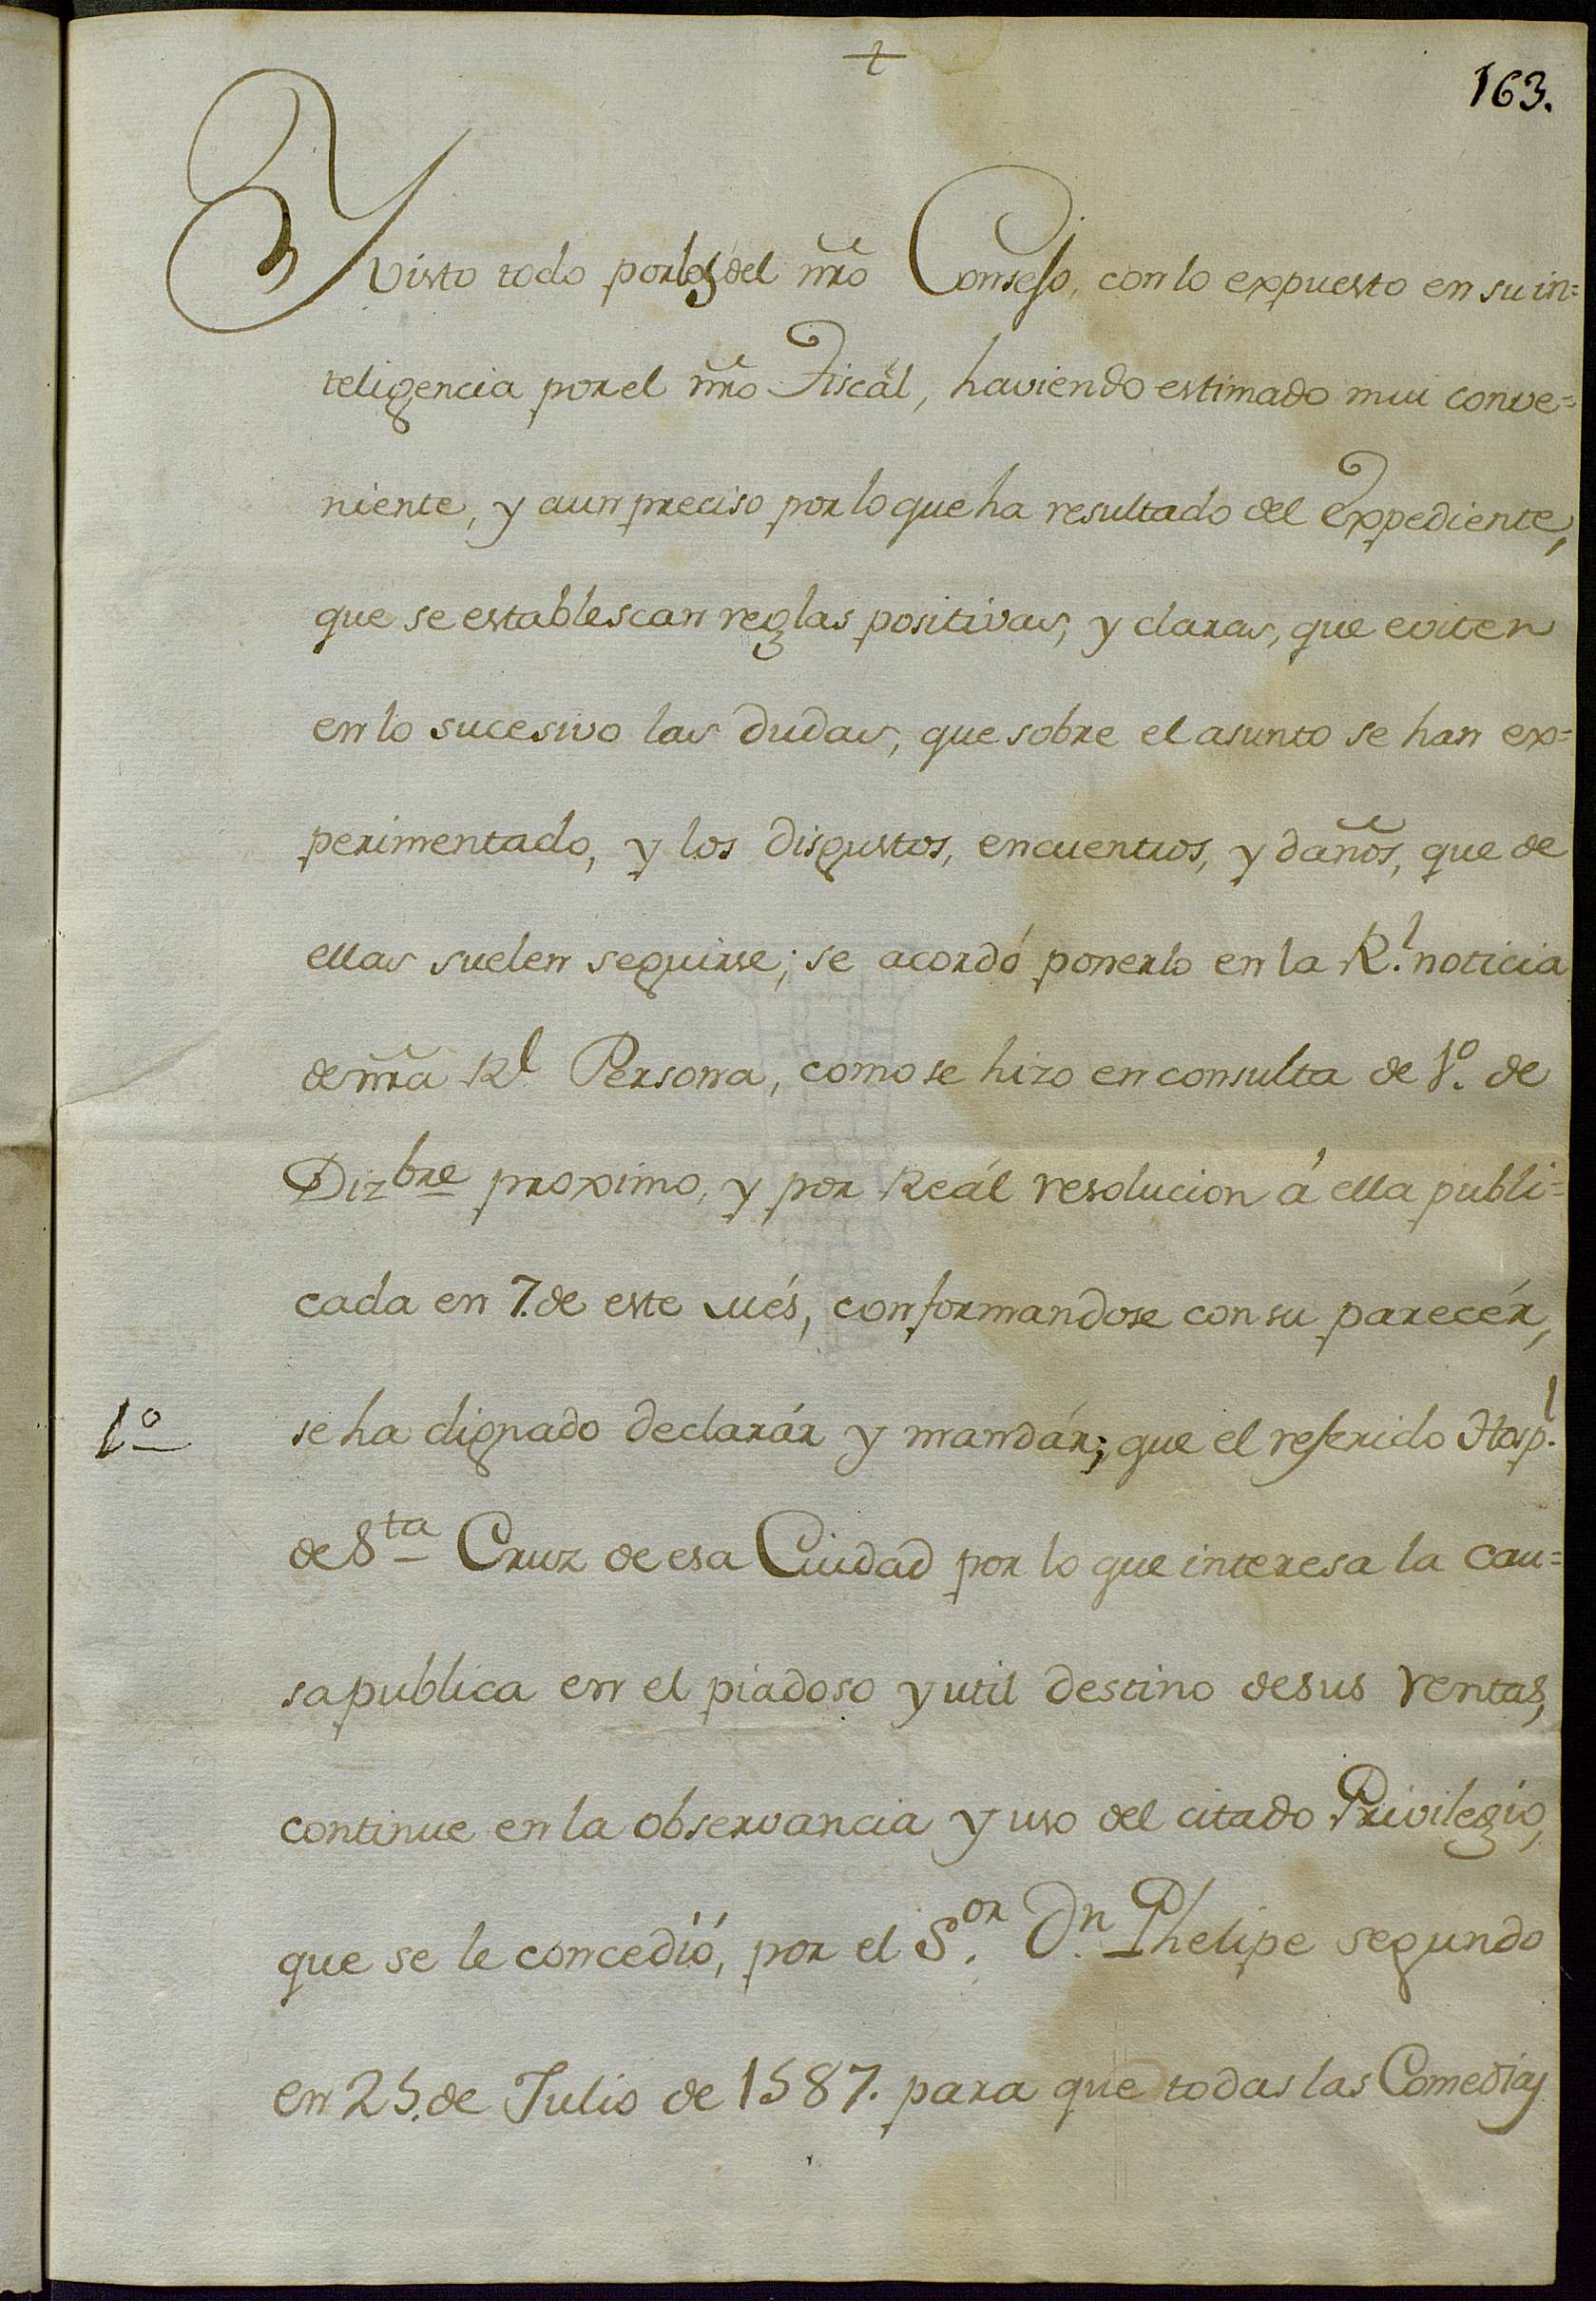 +
163.
Y visto todo por los del nro Consejo, con lo expuesto en su in=
teligencia por el nro Fiscál, haviendo estimado mui conve=
niente, y aun preciso por lo que ha resultado del Expediente,
que se establescan reglas positivas, y claras, que eviten
en lo sucesivo las dudas, que sobre el asunto se han ex=
perimentado, y los disgustos, encuentros, y daños, que de
ellas suelen seguirse; se acordó ponerlo en la Rl. noticia
de nra Rl. Persona, como se hizo en consulta de 1º. de
Dizbre proximo, y por Reál resolucion á ella publi=
cada en 7. de este més, conformandose con su parecér,
1º
se ha dignado declarár y mandár; que el referido Hospl.
de Sta Cruz de esa Ciudad por lo que interesa la cau=
sa publica en el piadoso y util destino de sus rentas,
continue en la observancia y uso del citado Privilegio,
que se le concedió, por el Sor. Dn. Phelipe segundo
en 25. de Julio de 1587. para que todas las Comedias